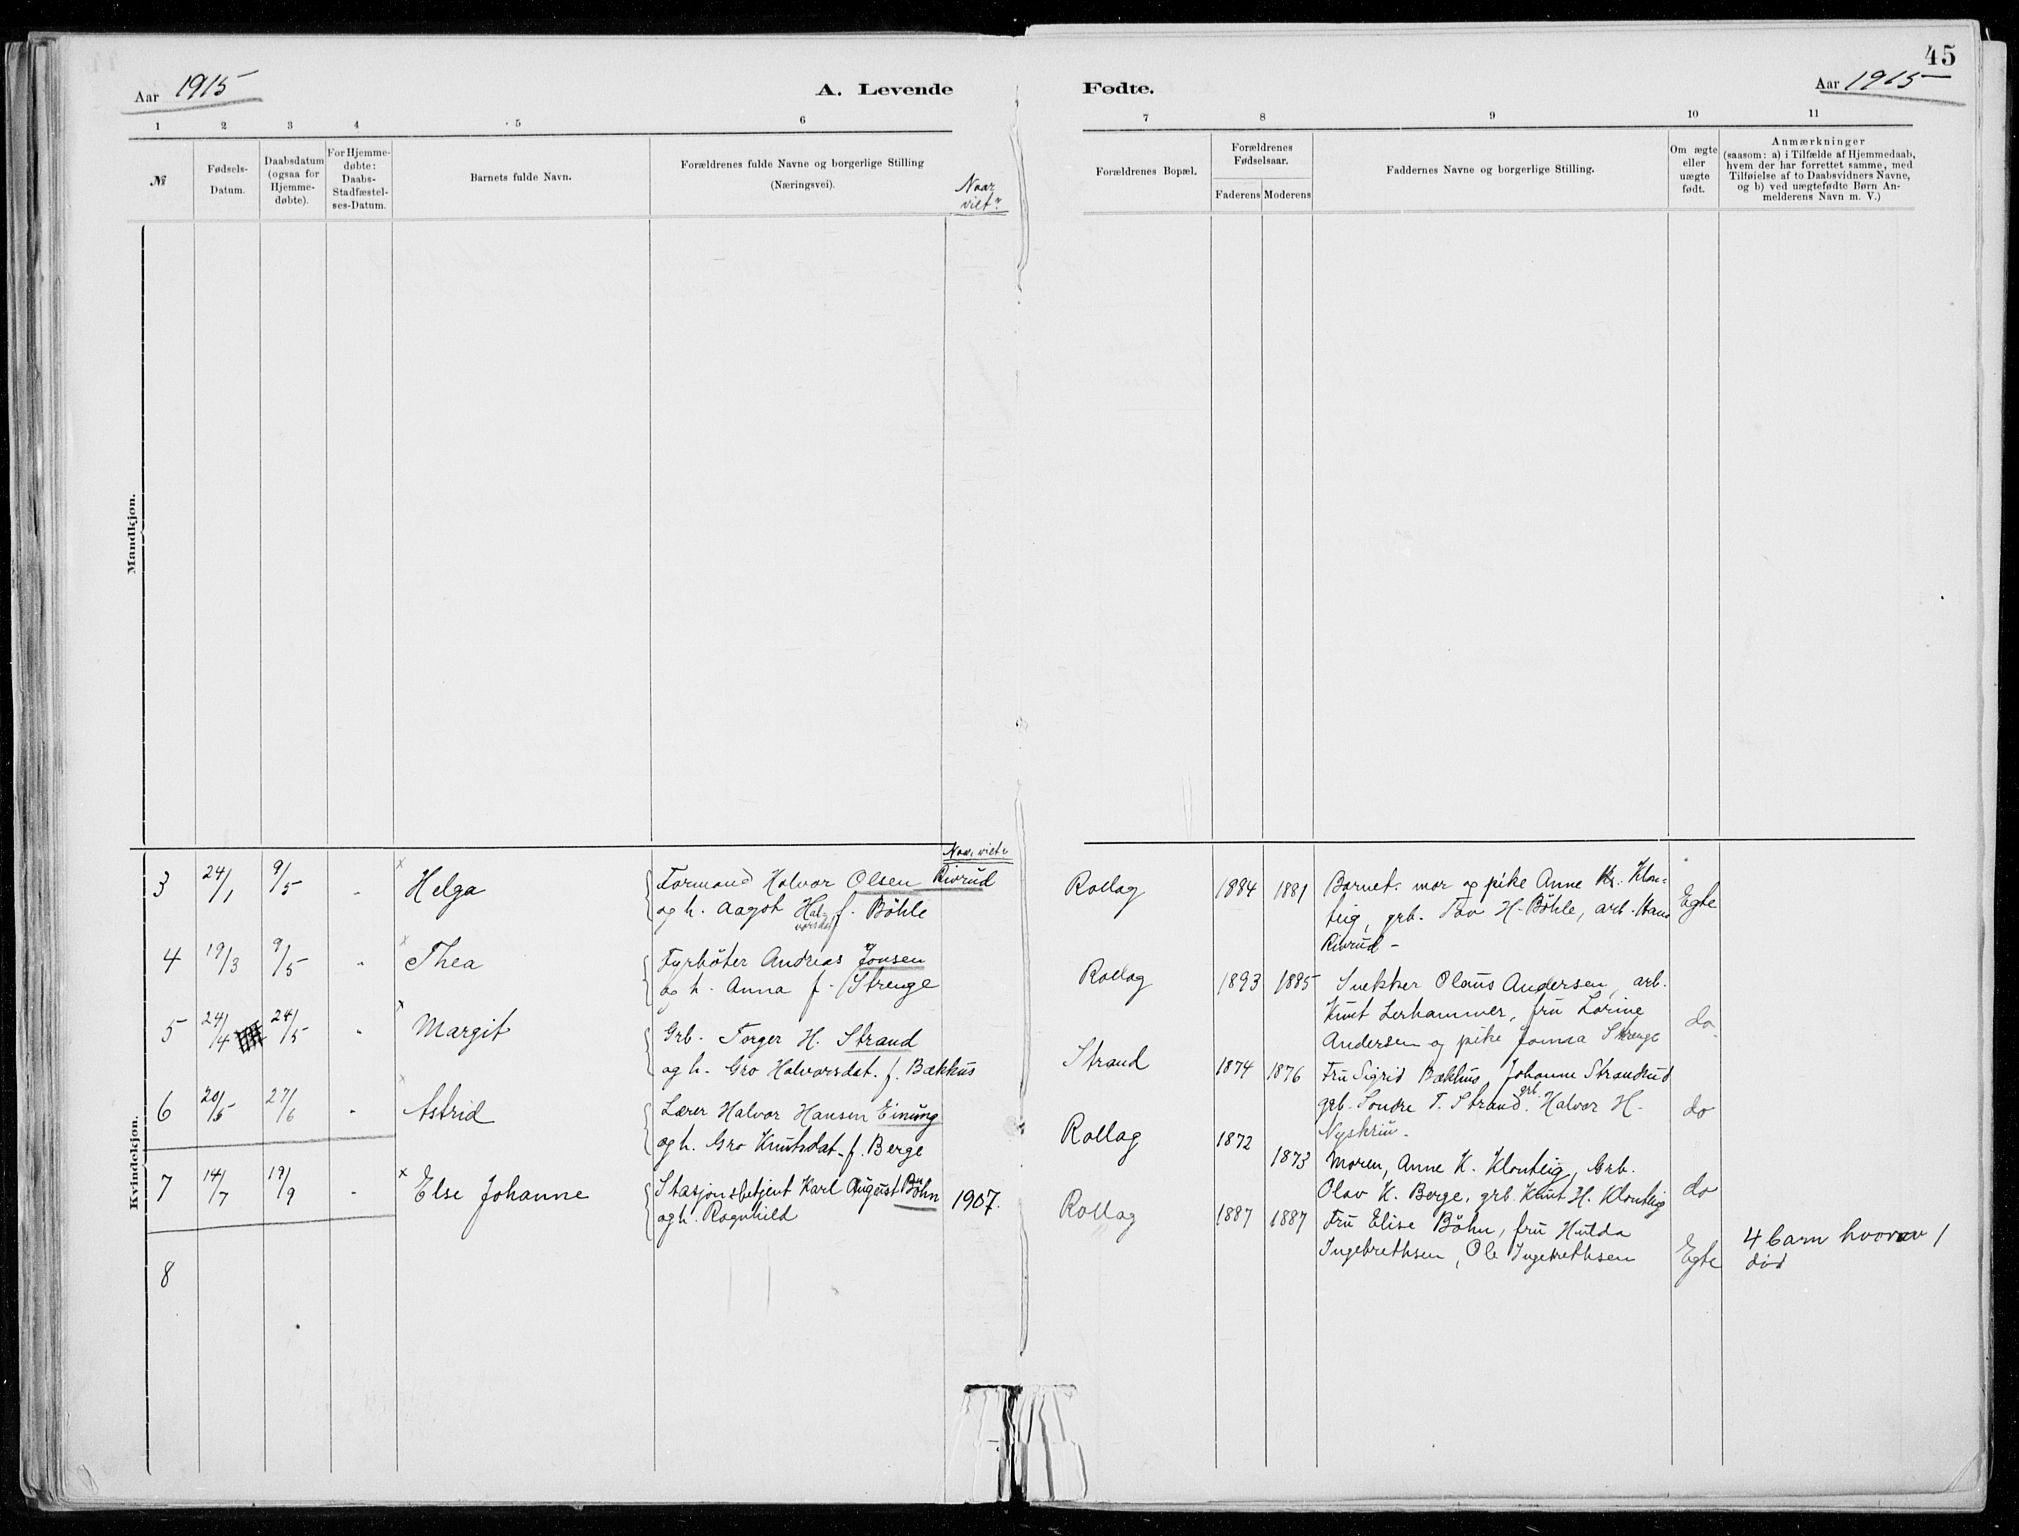 45
Aar 1915
A. Levende
Fødte.
Aar 1915
1 2 3 4 5 6
7 8 9 10 11
№
Fødsels-
Datum.
Daabsdatum
(ogsaa for
Hjemme-
døbte).
For Hjemme-
døbte:
Daabs-
Stadfæstel-
ses-Datum.
Barnets fulde Navn.
Forældrenes fulde Navne og borgerlige Stilling
(Næringsvei).
Naar
viet?
Forældrenes Bopæl.
Forældrenes
Fødselsaar.
Faderens Moderens
Faddernes Navne og borgerlige Stilling.
Om ægte
eller
uægte
født.
Anmærkninger
(saasom: a) i Tilfælde af Hjemmedaab,
hvem der har forrettet samme, med
Tilføielse af to Daabsvidners Navne,
og b) ved uægtefødte Børn An-
melderens Navn m. V.)
Mandkjøn.
Kvindekjøn.
Naar viet?
3 24/1 9/5 - Helga
Formand Halvor Olsen Rivrud
og h. Aagot Hal-
vorsdat f. Bøhle
Rollag 1884 1881
Barnets mor og pike Anne K. Klon-
teig, grb. Tov H. Bøhle, arb. Hans
Rivrud -
Egte
4 19/3 9/5 - Thea
Fyrbøter Andreas Jonsen
og h. Anna f. Strenge
Rollag 1893 1885
Snekker Olaus Andersen, arb.
Knut Lerhammer, fru Lorine
Andersen og pike Jonna Strenge
do.
5 24/4 24/5 - Margit
Grb. Torger H. Strand
og h. Gro Halvorsdat. f. Bækkus
Strand 1874 1876
Fru Sigrid Bækhus, Johanne Strandrud
grb. Sondre T. Strand, grb. Halvor H.
do
6 20/5 27/6 - Astrid
Lærer Halvor Hansen Einung
og h. Gro Knutsdat. f. Berge
Rollag 1872 1873
Moren, Anne K. Klonteig, Grb.
Olav K. Berge, grb. Knut H. Klonteig
do
7 14/7 19/9 - Else Johanne
Stasjonsbetjent Karl August Bøhn
og h. Ragnhild
1907.
Rollag 1887 1887
Fru Elise Bøhn, fru Hulda
Ingebrethsen, Ole Ingebrethsen
Egte
4 barn hvorav 1
død
8